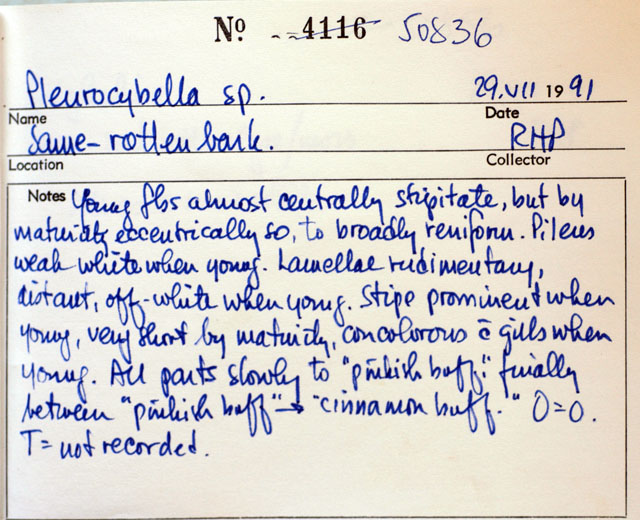 No - - 4116 50836
Pleurocybella sp. 29.VII 1991
Name Date
Same - rotten bark. RHP
Location Collector
Notes Young fbs almost centrally stipitate, but by
maturity eccentrically so, to broadly reniform. Pileus
weak white when young. Lamellae rudimentary,
distant, off-white when young. Stipe prominent when
young, very short by maturity, concolorous c̄ gills when
young. All parts slowly to "pinkish buff." finally
between "pinkish buff" → "cinnamon buff." O=O.
T= not recorded.